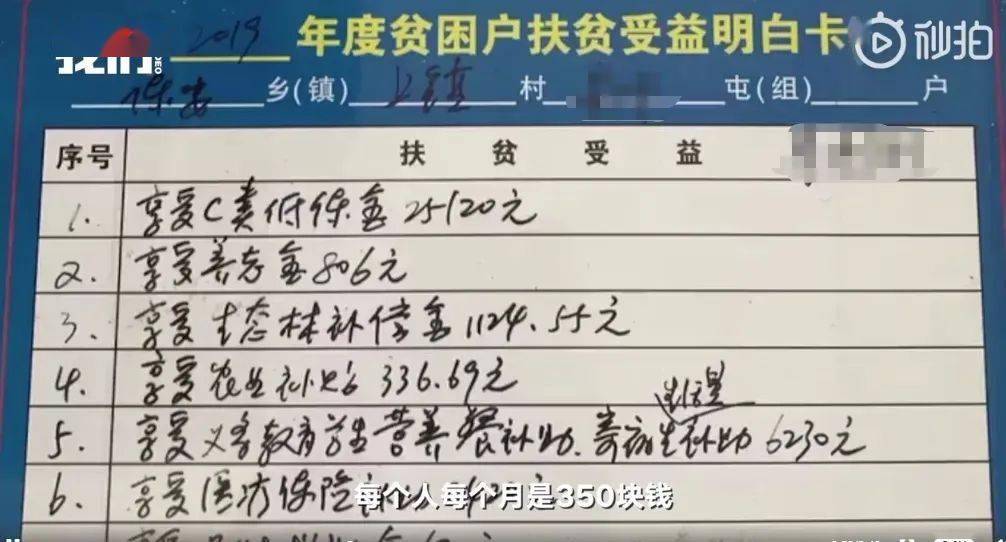 我们 VIDEO
秒拍
2019 年度贫困户扶贫受益明白卡
保安 乡(镇) 上镇 村 屯(组) 户
序号 扶贫受益
1. 享受C类低保金25120元
2. 享受养老金806元
3. 享受生态林补偿金1124.55元
4. 享受农业补贴336.69元
生活
5. 享受义务教育学生营养餐补助、寄宿生补助6230元
6. 享受医疗保险
每个人每个月是350块钱